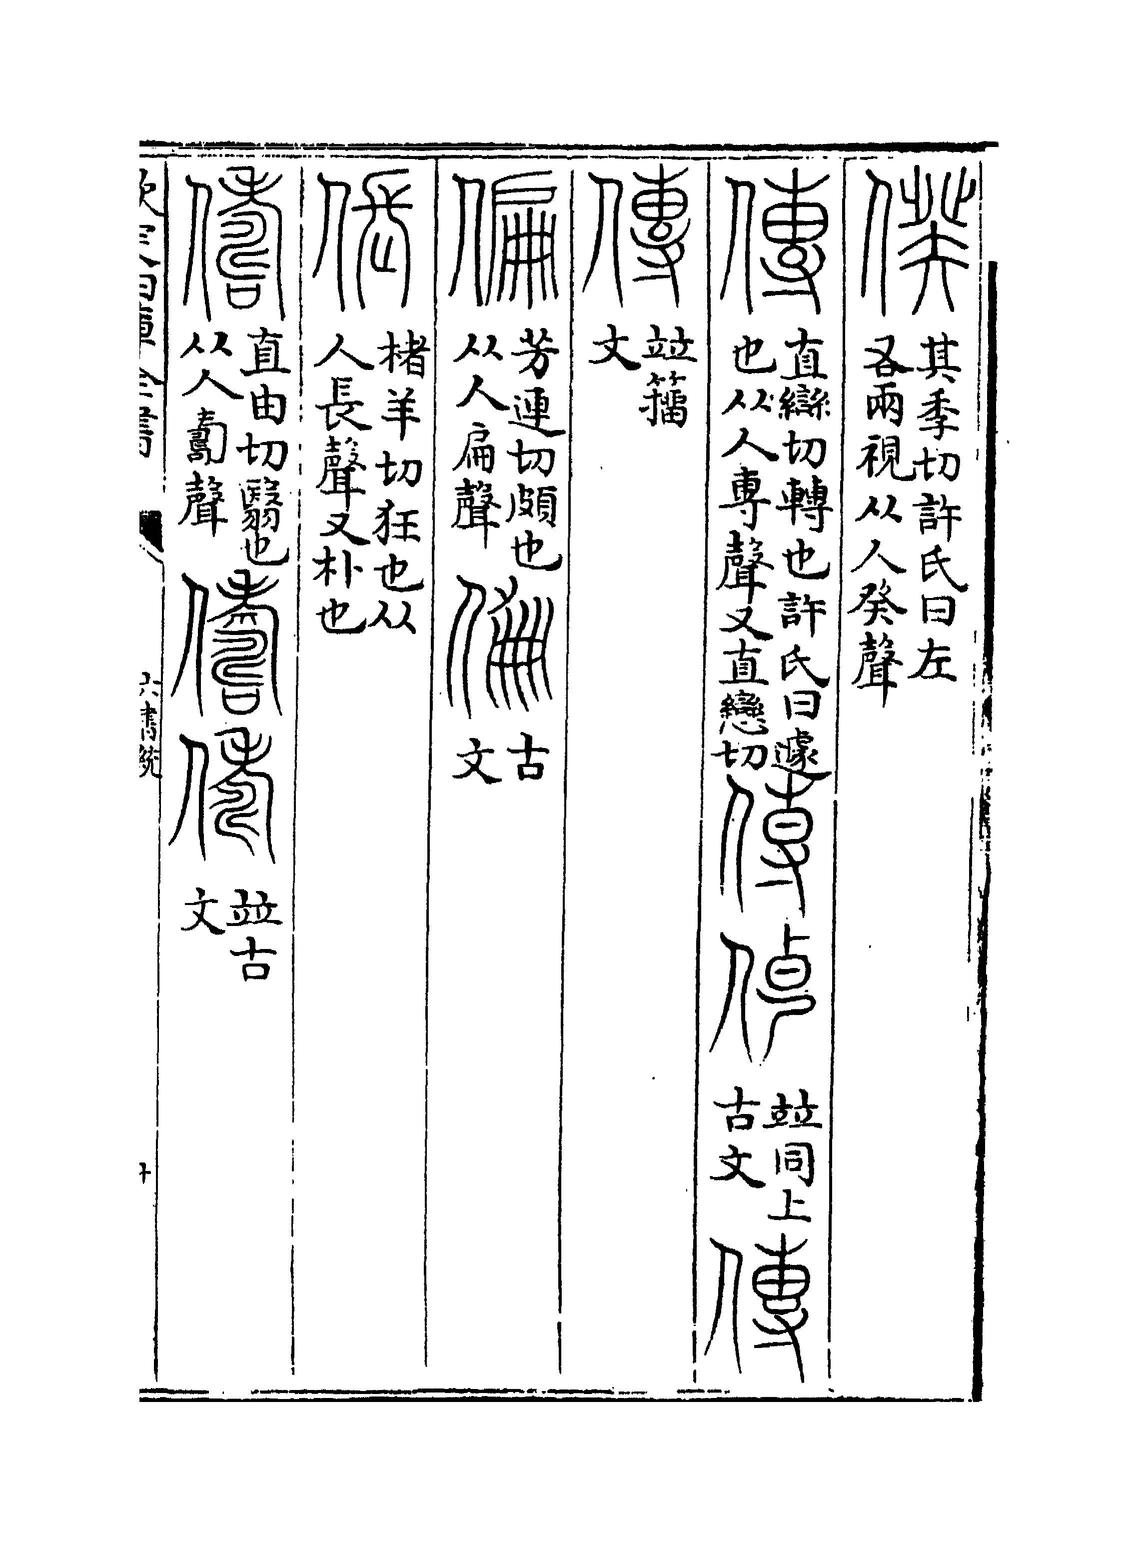 傒 其季切許氏曰左
各兩視从人癸聲
傳 直䜌切轉也許氏曰遽
也从人專聲又直戀切
傳 傳 並同上
古文
傳
傳 並籀
文
偏 芳連切頗也
从人扁聲
偏 古
文
倀 楮羊切狂也从
人長聲又朴也
儔 直由切翳也
从人壽聲
儔 儔 並古
文
欽定四庫全書
六書統